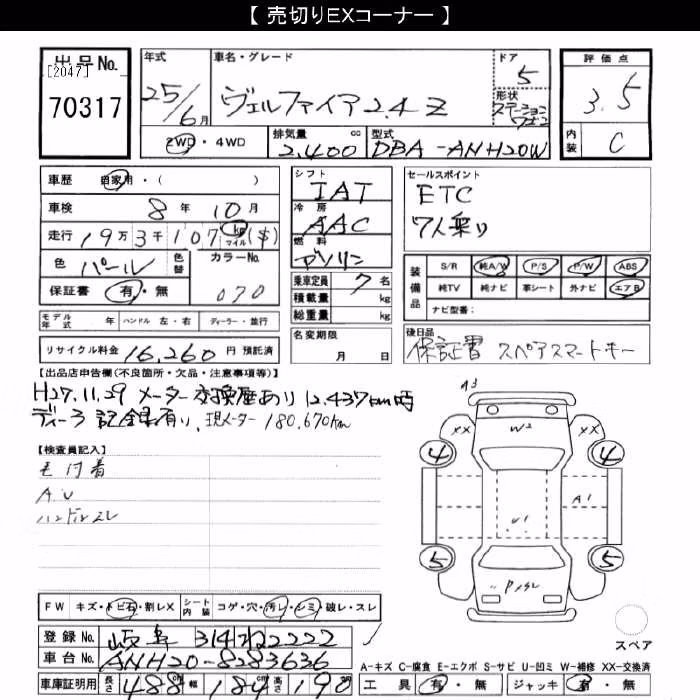 【 売切りEXコーナー 】
出品No.
[2047]
70317
年式
25/6月
車名・グレード
ヴェルファイア2.4Z
ドア
5
形状
ステーションワゴン
2WD・4WD
排気量 cc
2,400
型式
DBA-ANH20W
評価点
3.5
内装
C
車歴 自家用・( )
車検 8年10月
走行 19万3千107 kg マイル ($)
色 パール
色替
カラーNo.
070
保証書 有・無
モデル年式 年 ハンドル 左・右 ディーラー・並行
リサイクル料金 16,260円 預託済
シフト
IAT
冷房
AAC
燃料
ガソリン
乗車定員 7名
積載量 kg
総重量 kg
名変期限
月 日
セールスポイント
ETC
7人乗り
装備品
S/R 純A/W P/S P/W ABS
純TV 純ナビ 革シート 外ナビ エアB
ナビ型番:
後日品
保証書 スペアスマートキー
【出品店申告欄(不良箇所・欠品・注意事項等)】
H27.11.29 メーター交換歴あり 12.437km時
ディーラー記録有り、現メーター180,670km
【検査員記入】
毛付着
AU
ハンドルスレ
A3
XX W2 XX
4 4
A1
U1
5 5
FW キズ・トビ石・割レX
シート内装 コゲ・穴・汚レ・シミ・破レ・スレ
登録No. 岐阜 314ね2222
車台No. ANH20-8283636
車庫証明用 長さ 488cm 幅 184cm 高さ 190cm
スペア
A-キズ C-腐食 E-エクボ S-サビ U-凹ミ W-補修 XX-交換済
工具 有・無 ジャッキ 有・無